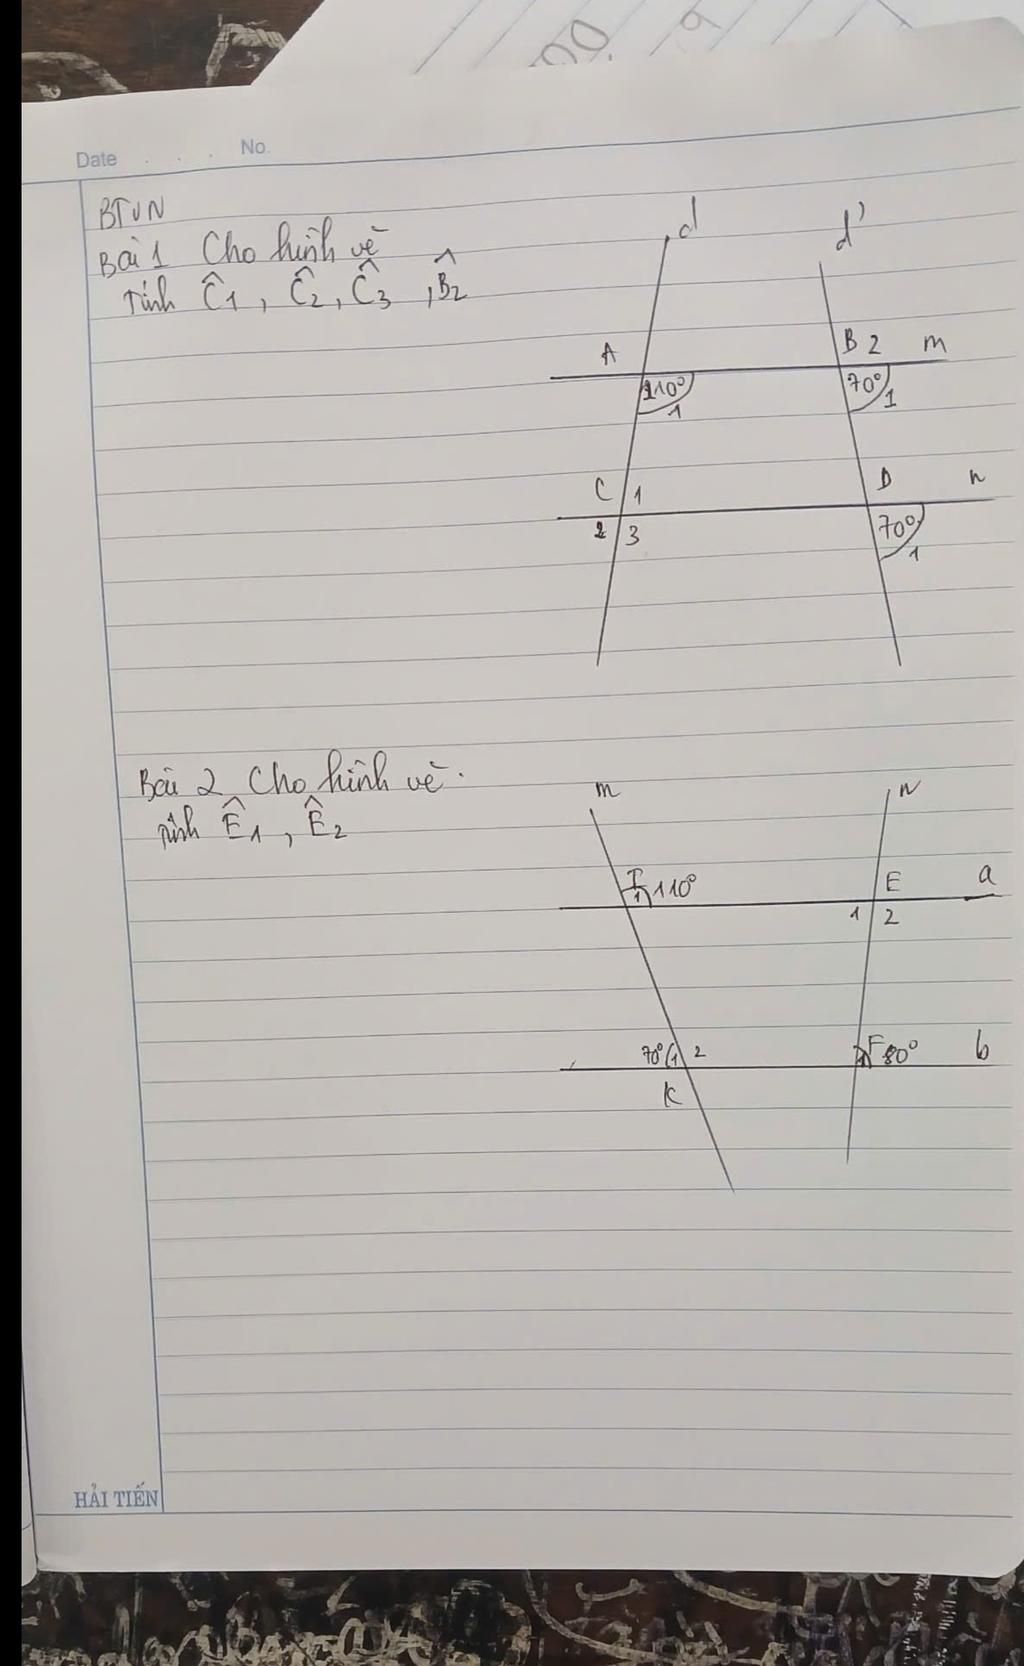 00.
9
Date . . . No.
BTVN
Bài 1 Cho hình vẽ
Tính Ĉ1, Ĉ2, Ĉ3, B̂2
d
d'
A
B 2 m
110°
1
70°
1
C 1
D
n
2 3
70°
1
Bài 2 Cho hình vẽ.
Tính Ê1, Ê2
m
n
I
1 110°
E
a
1 2
70° 1 2
F 80°
b
K
HẢI TIẾN